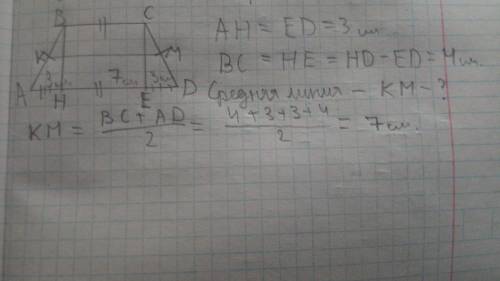 B C
K M
3 см 7 см 3 см
A H E D
AH = ED = 3 см.
BC = HE = HD - ED = 4 см.
Средняя линия - KM - ?
KM = BC + AD / 2 = 4 + 3 + 3 + 4 / 2 = 7 см.